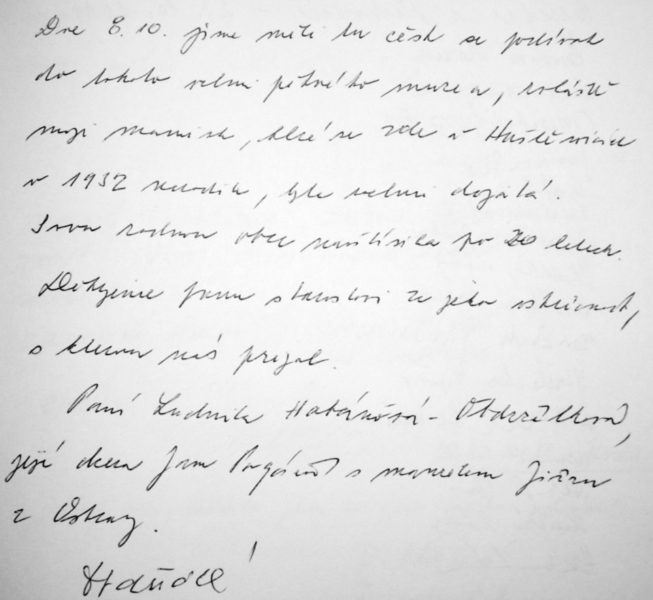 Dne 8.10. jsme měli tu čest se podívat
do tohoto velmi pěkného muzea, zvláště
moji mamink, která se zde v Huštěnovicích
v 1932 narodila, byla velmi dojatá.
Svou rodnou obec navštívila po 20 letech.
Děkujeme panu starostovi za jeho vstřícnost,
s kterou nás přijal.
Paní Ludmila - Obdržálková,
její dcera Jana s manželem Jiřím
z Ostravy.